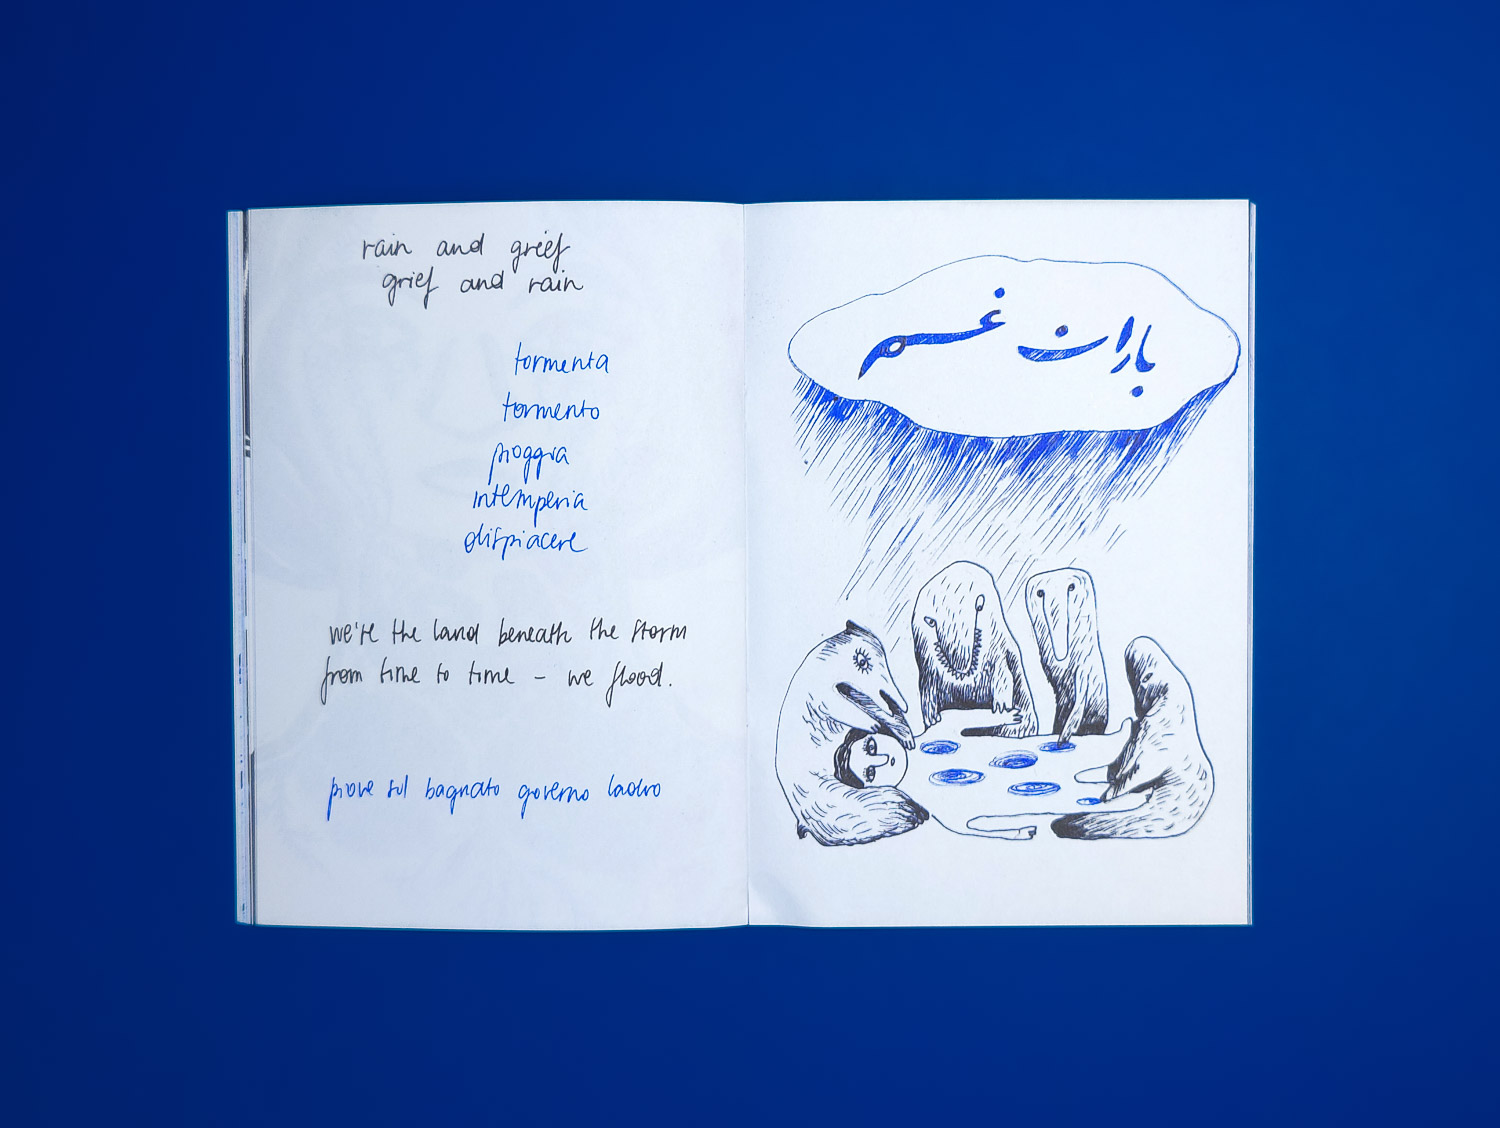 rain and grief
grief and rain
tormenta
tormento
pioggia
intemperia
dispiacere
we're the land beneath the storm
from time to time – we flood.
piove sul bagnato governo ladro
باران غم